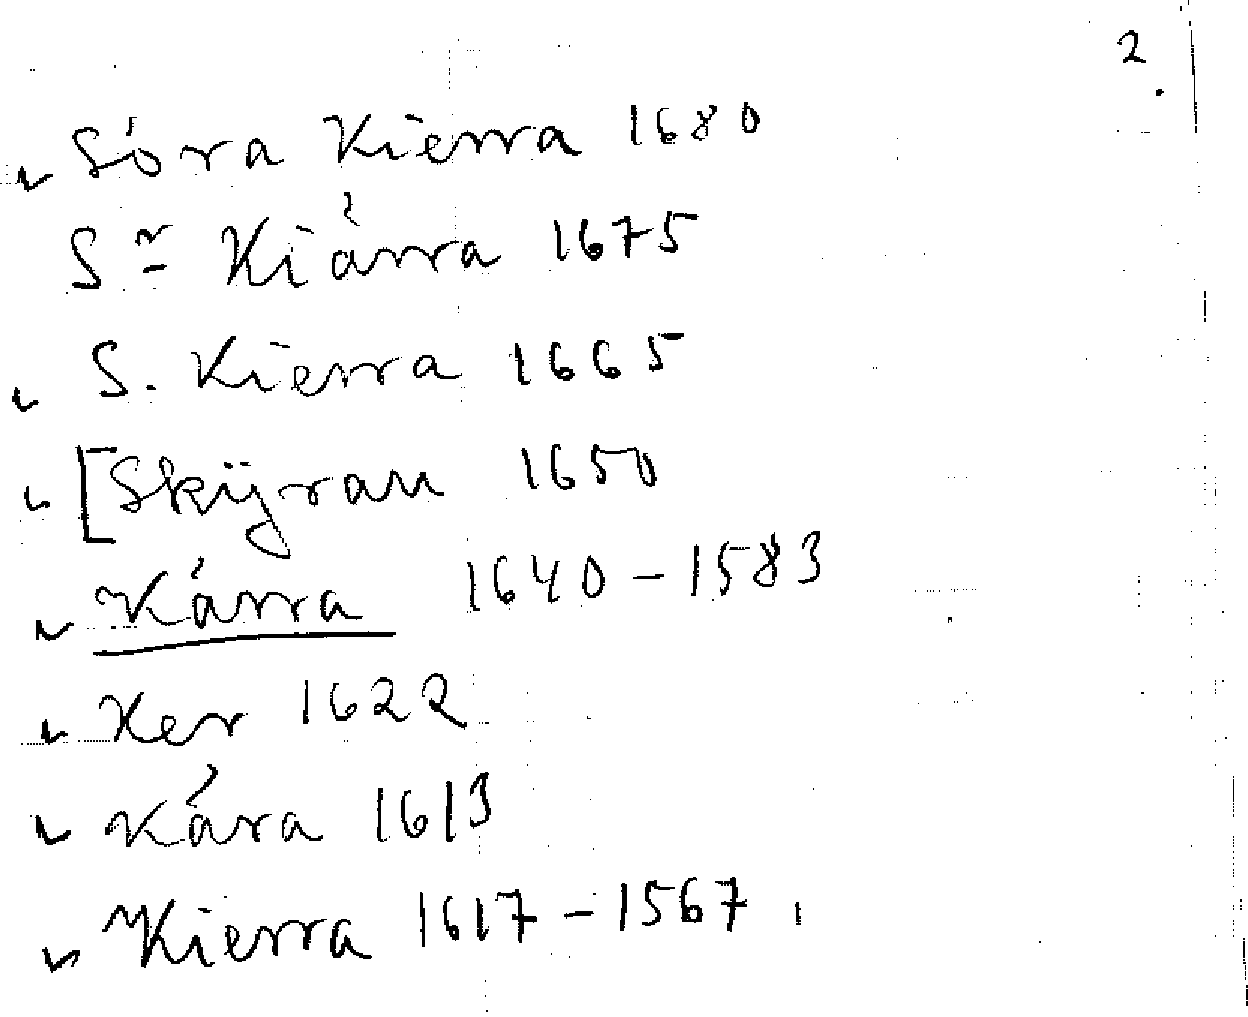 2.
Sóra Kierra 1680
Sr Kiårra 1675
S. Kierra 1665
[Skÿrau 1650
Kárra 1640-1583
Ker 1622
Kåra 1613
Kierra 1617-1567.